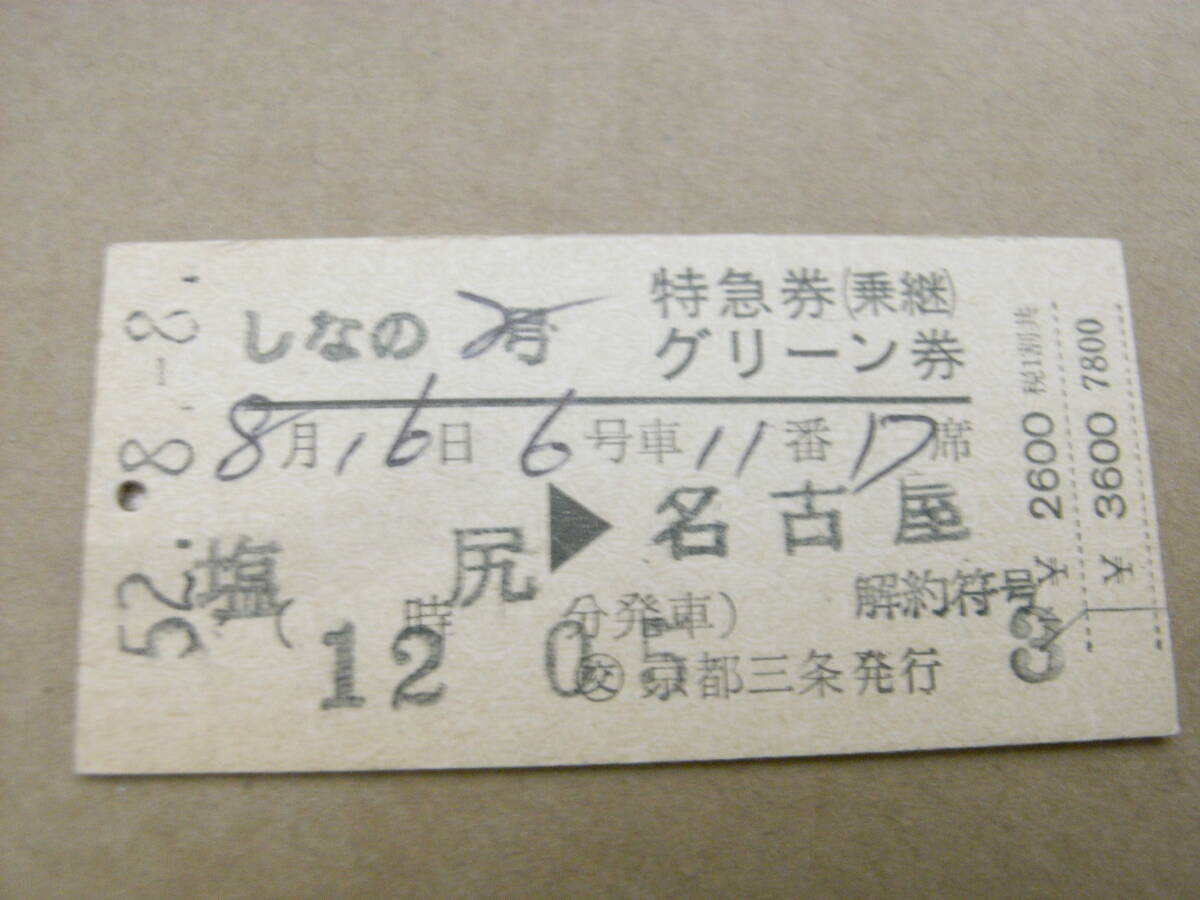 しなの 号 特急券(乗継)
グリーン券
8月16日 6号車 11番 D席
塩尻▶名古屋
(12時05分発車) 解約符号
㋛京都三条発行
52.-8.-8.
税1割共
¥2600
7800
¥3600